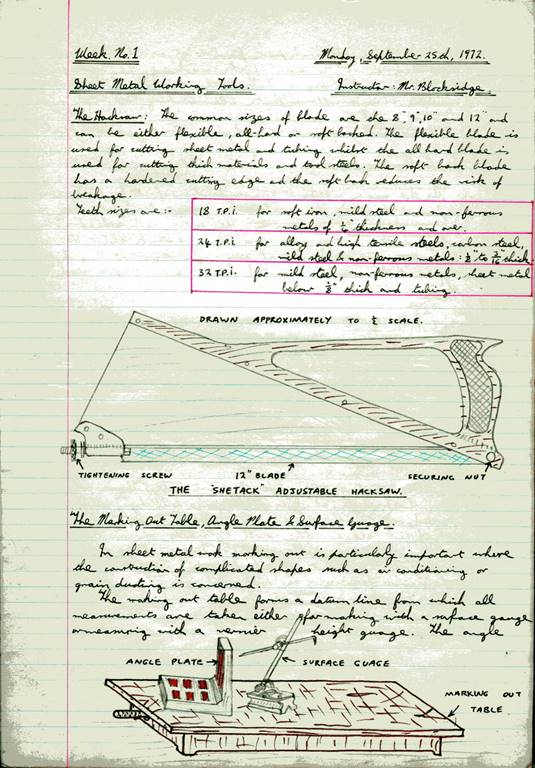 Week. No. 1 Monday, September 25th, 1972.
Sheet Metal Working Tools. Instructor: Mr. Blocksidge.
The Hacksaw: The common sizes of blade are the 8" 9", 10" and 12" and
can be either flexible, all-hard or soft backed. The flexible blade is
used for cutting sheet metal and tubing whilst the all hard blade is
used for cutting thick materials and tool steels. The soft back blade
has a hardened cutting edge ad the soft back reduces the risk of
breakage.
Teeth sizes are:-
18 T.P.i. for soft iron, mild steel and non-ferrous
metals of thickness and over.
24 T.P.i. for alloy and high tensile steels, carbon steel,
mild steel & non-ferrous metals: to thick.
32 T.P.i. for mild steel, non-ferrous metals, sheet metal
below thick and tubing.
DRAWN APPROXIMATELY TO SCALE.
TIGHTENING SCREW 12" BLADE SECURING NUT
THE "SHETACK" ADJUSTABLE HACKSAW.
The Marking Out Table, Angle Plate & Surface Guage.
In sheet metal work marking out is particularly important where
the construction of complicated shapes such as air conditioning or
grain ducting is concerned.
The marking out table forms a datum line from which all
measurements are taken either for marking with a surface gauge
or measuring with a vernier height guage. The angle
ANGLE PLATE SURFACE GUAGE
MARKING OUT
TABLE